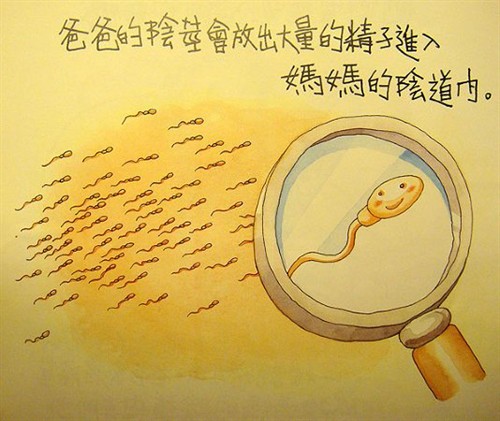 爸爸的陰莖會放出大量的精子進入
媽媽的陰道內。